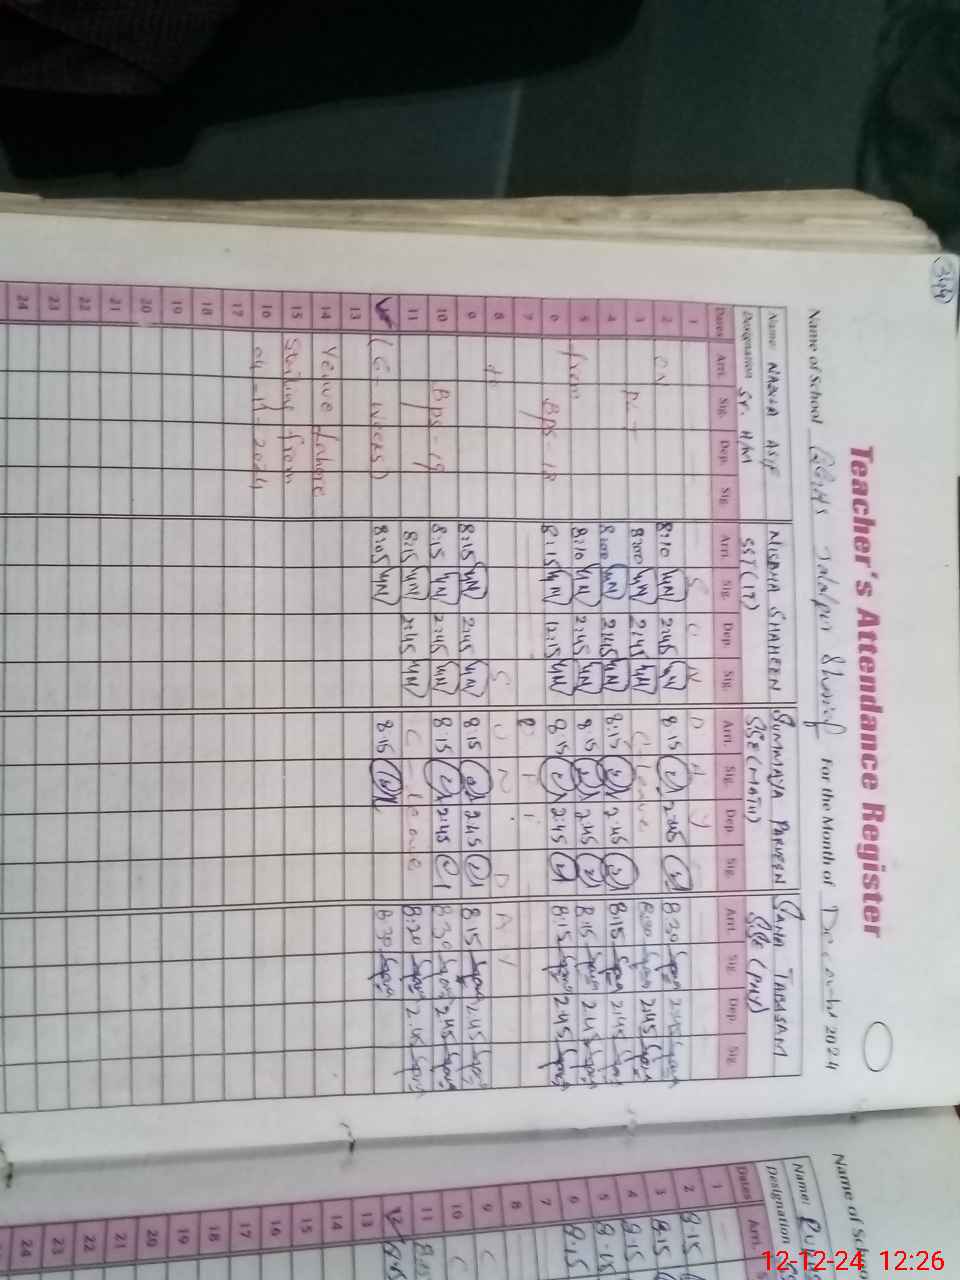 344
Teacher's Attendance Register
Name of School GGHS Jalalpur Sharif For the Month of December 2024
Name: NAZIA ASIF MISBHA SHAHEEN SUMMAYA PARVEEN SANA TABASAM
Designation Sr. H/M SST(IT) SSE(MATH) SSE(PHY)
Dates Arri. Sig. Dep. Sig. Arri. Sig. Dep. Sig. Arri. Sig. Dep. Sig. Arri. Sig. Dep. Sig.
1 S U N D A Y
2 ON 8:10 2:45 8:15 2:45 8:30 2:45
3 8:00 2:45 C. leave 8:30 2:45
4 8:00 2:45 8:15 2:45 8:15 2:45
5 from 8:10 2:45 8:15 2:45 8:15 2:45
6 Bps-18 8:15 12:15 8:15 2:45 8:15 2:45
7
8 to S U N D A Y
9 8:15 2:45 8:15 2:45 8:15 2:45
10 Bps-19 8:15 2:45 8:15 2:45 8:30 2:45
11 8:15 2:45 C-leave 8:20 2:45
(6-weeks) 8:05 8:15 8:30
13
14 Venue Lahore
15 Starting from
16 04-11-2024
17
18
19
20
21
22
23
24
Name of School
Name:
Designation
Dates Arri.
1
2 8:15
3 8:15
4 8:15
5 8:15
6 8:15
7
8
9 C
10 C
11
12
13
14
15
16
17
18
19
20
21
22
23
24
12-12-24 12:26